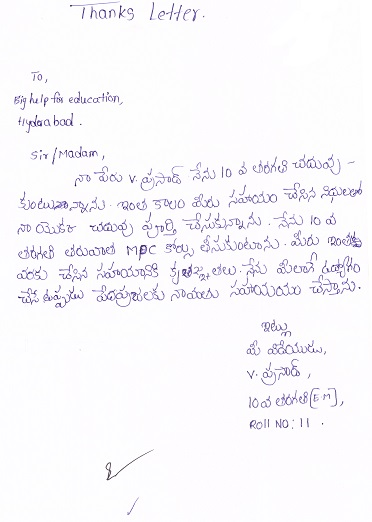 Thanks Letter.
To,
Big help for education,
Hyderabad.
Sir/Madam,
నా పేరు V. ప్రసాద్ నేను 10 వ తరగతి చదువు -
కుంటున్నాను. ఇంత కాలం మీరు సహాయం చేసిన నిధులతో
నా యొక్క చదువు పూర్తి చేసుకున్నాను. నేను 10 వ
తరగతి తరువాత MPC కోర్సు తీసుకుంటాను. మీరు ఇంతకు
వరకు చేసిన సహాయానికి కృతజ్ఞతలు. నేను మీలాగే ఉద్యోగం
చేసే టప్పుడు పేదప్రజలకు సహాయం చేస్తాను.
ఇట్లు
మీ విధేయుడు,
V. ప్రసాద్,
10వ తరగతి [EM],
Roll NO: 11.